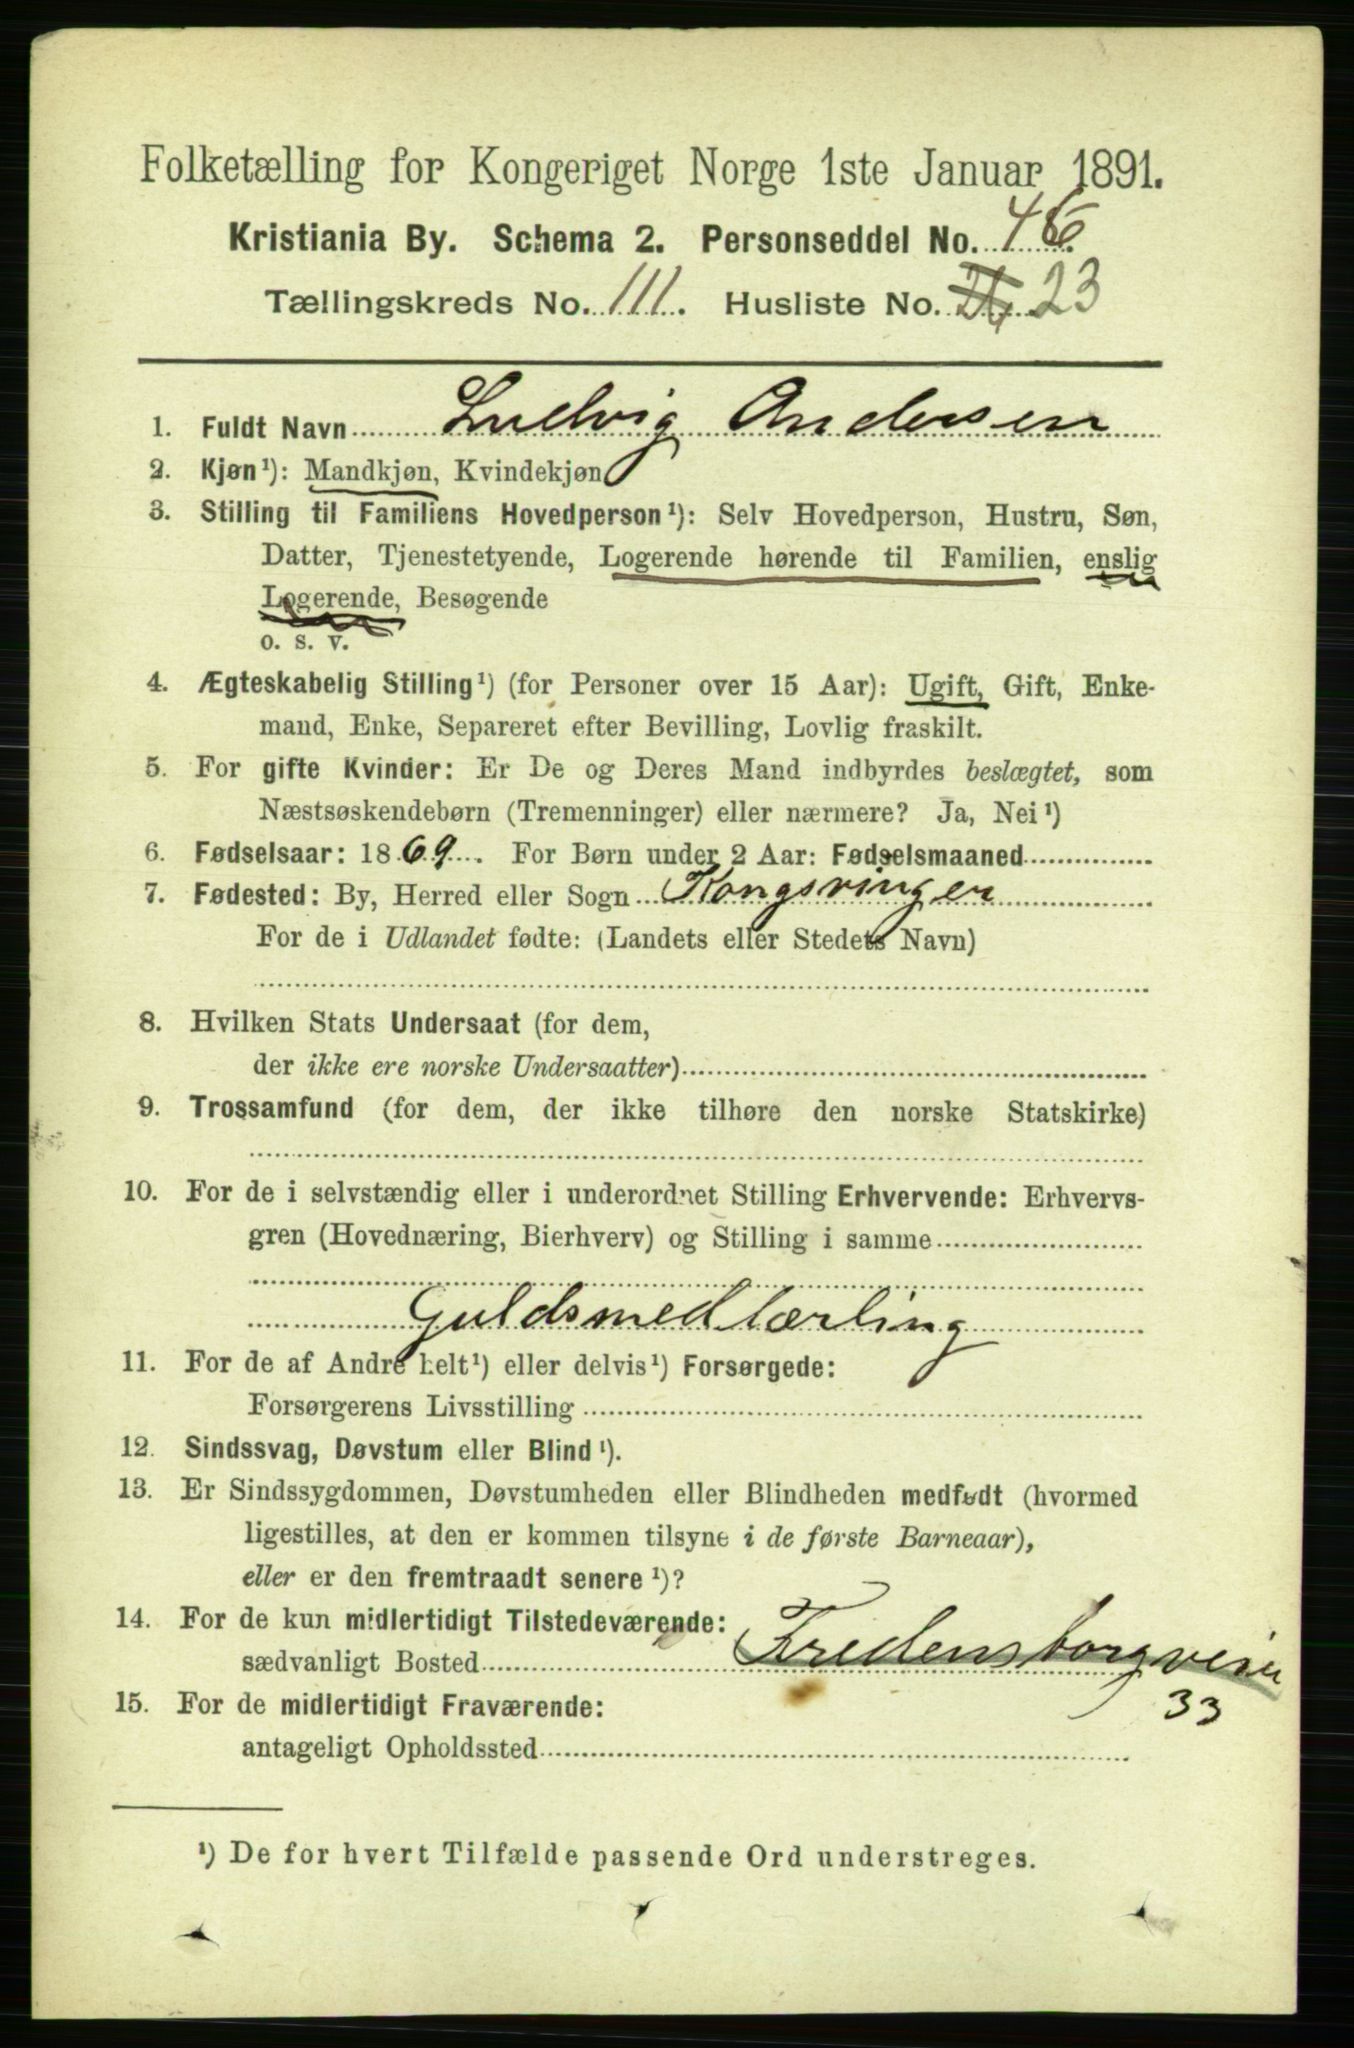 Folketælling for Kongeriget Norge 1ste Januar 1891.
Kristiania By. Schema 2. Personseddel No. 46
Tællingskreds No. 111. Husliste No. 23
1. Fuldt Navn Ludvig Andersen
2. Kjøn¹): Mandkjøn, Kvindekjøn
3. Stilling til Familiens Hovedperson¹): Selv Hovedperson, Hustru, Søn,
Datter, Tjenestetyende, Logerende hørende til Familien, enslig
Logerende, Besøgende
o. s. v.
4. Ægteskabelig Stilling¹) (for Personer over 15 Aar): Ugift, Gift, Enke-
mand, Enke, Separeret efter Bevilling, Lovlig fraskilt.
5. For gifte Kvinder: Er De og Deres Mand indbyrdes beslægtet, som
Næstsøskendebørn (Tremenninger) eller nærmere? Ja, Nei¹)
6. Fødselsaar: 1869. For Børn under 2 Aar: Fødselsmaaned
7. Fødested: By, Herred eller Sogn Kongsvinger
For de i Udlandet fødte: (Landets eller Stedets Navn)
8. Hvilken Stats Undersaat (for dem,
der ikke ere norske Undersaatter)
9. Trossamfund (for dem, der ikke tilhøre den norske Statskirke)
10. For de i selvstændig eller i underordnet Stilling Erhvervende: Erhvervs-
gren (Hovednæring, Bierhverv) og Stilling i samme
Guldsmedlærling
11. For de af Andre helt¹) eller delvis¹) Forsørgede:
Forsørgerens Livsstilling
12. Sindssvag, Døvstum eller Blind¹).
13. Er Sindssygdommen, Døvstumheden eller Blindheden medfødt (hvormed
ligestilles, at den er kommen tilsyne i de første Barneaar),
eller er den fremtraadt senere¹)?
14. For de kun midlertidigt Tilstedeværende:
sædvanligt Bosted Fredensborgveien
33
15. For de midlertidigt Fraværende:
antageligt Opholdssted
¹) De for hvert Tilfælde passende Ord understreges.